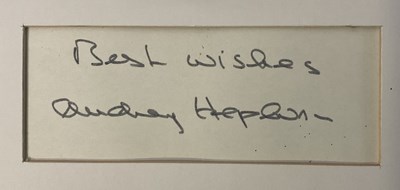 Best wishes
Audrey Hepburn